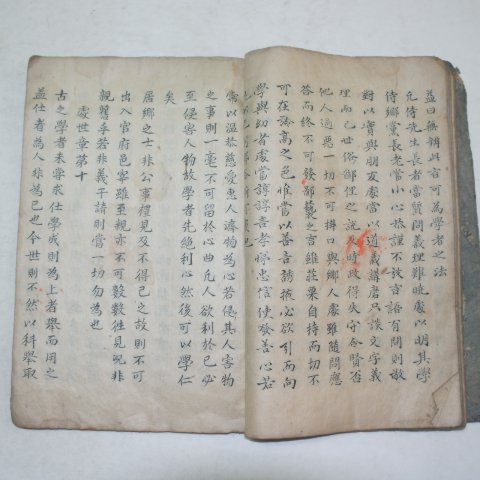 益曰無辨此言可為學者之法
凡侍先生長者當質問義理難曉處以明其學
侍鄉黨長老當小心恭謹不放言語有問則敬
對以實與朋友處當以道義講磨只談文字義
理而已世俗鄙俚之說及時政得失守令賢否
他人過惡一切不可掛口與鄉人處雖隨問應
答而終不可發鄙褻之言雖莊栗自持而切不
可存矜高之色惟當以善言誘掖必欲引而向
學與幼者處當諄諄言孝悌忠信使發善心若
常以溫恭慈愛惠人濟物為心若侵其人害物
之事則一毫不可留於心曲凡人欲利於己必
至侵害人物故學者先絕利心然後可以學仁
矣
居鄉之士非公事禮見及不得已之故則不可
出入官府邑宰雖至親亦不可數數往見况非
親舊乎若非義干請則當一切勿為也
處世章第十
古之學者未嘗求仕學成則為上者舉而用之
盖仕者為人非為己也今世則不然以科舉取